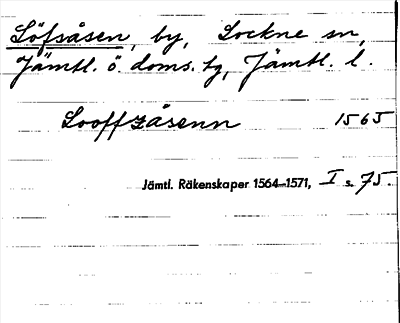 Löfsåsen, by, Lockne sn,
Jämtl. ö. doms. tg, Jämtl. l.
Looffzåsenn 1565
Jämtl. Räkenskaper 1564—1571, I s. 75.